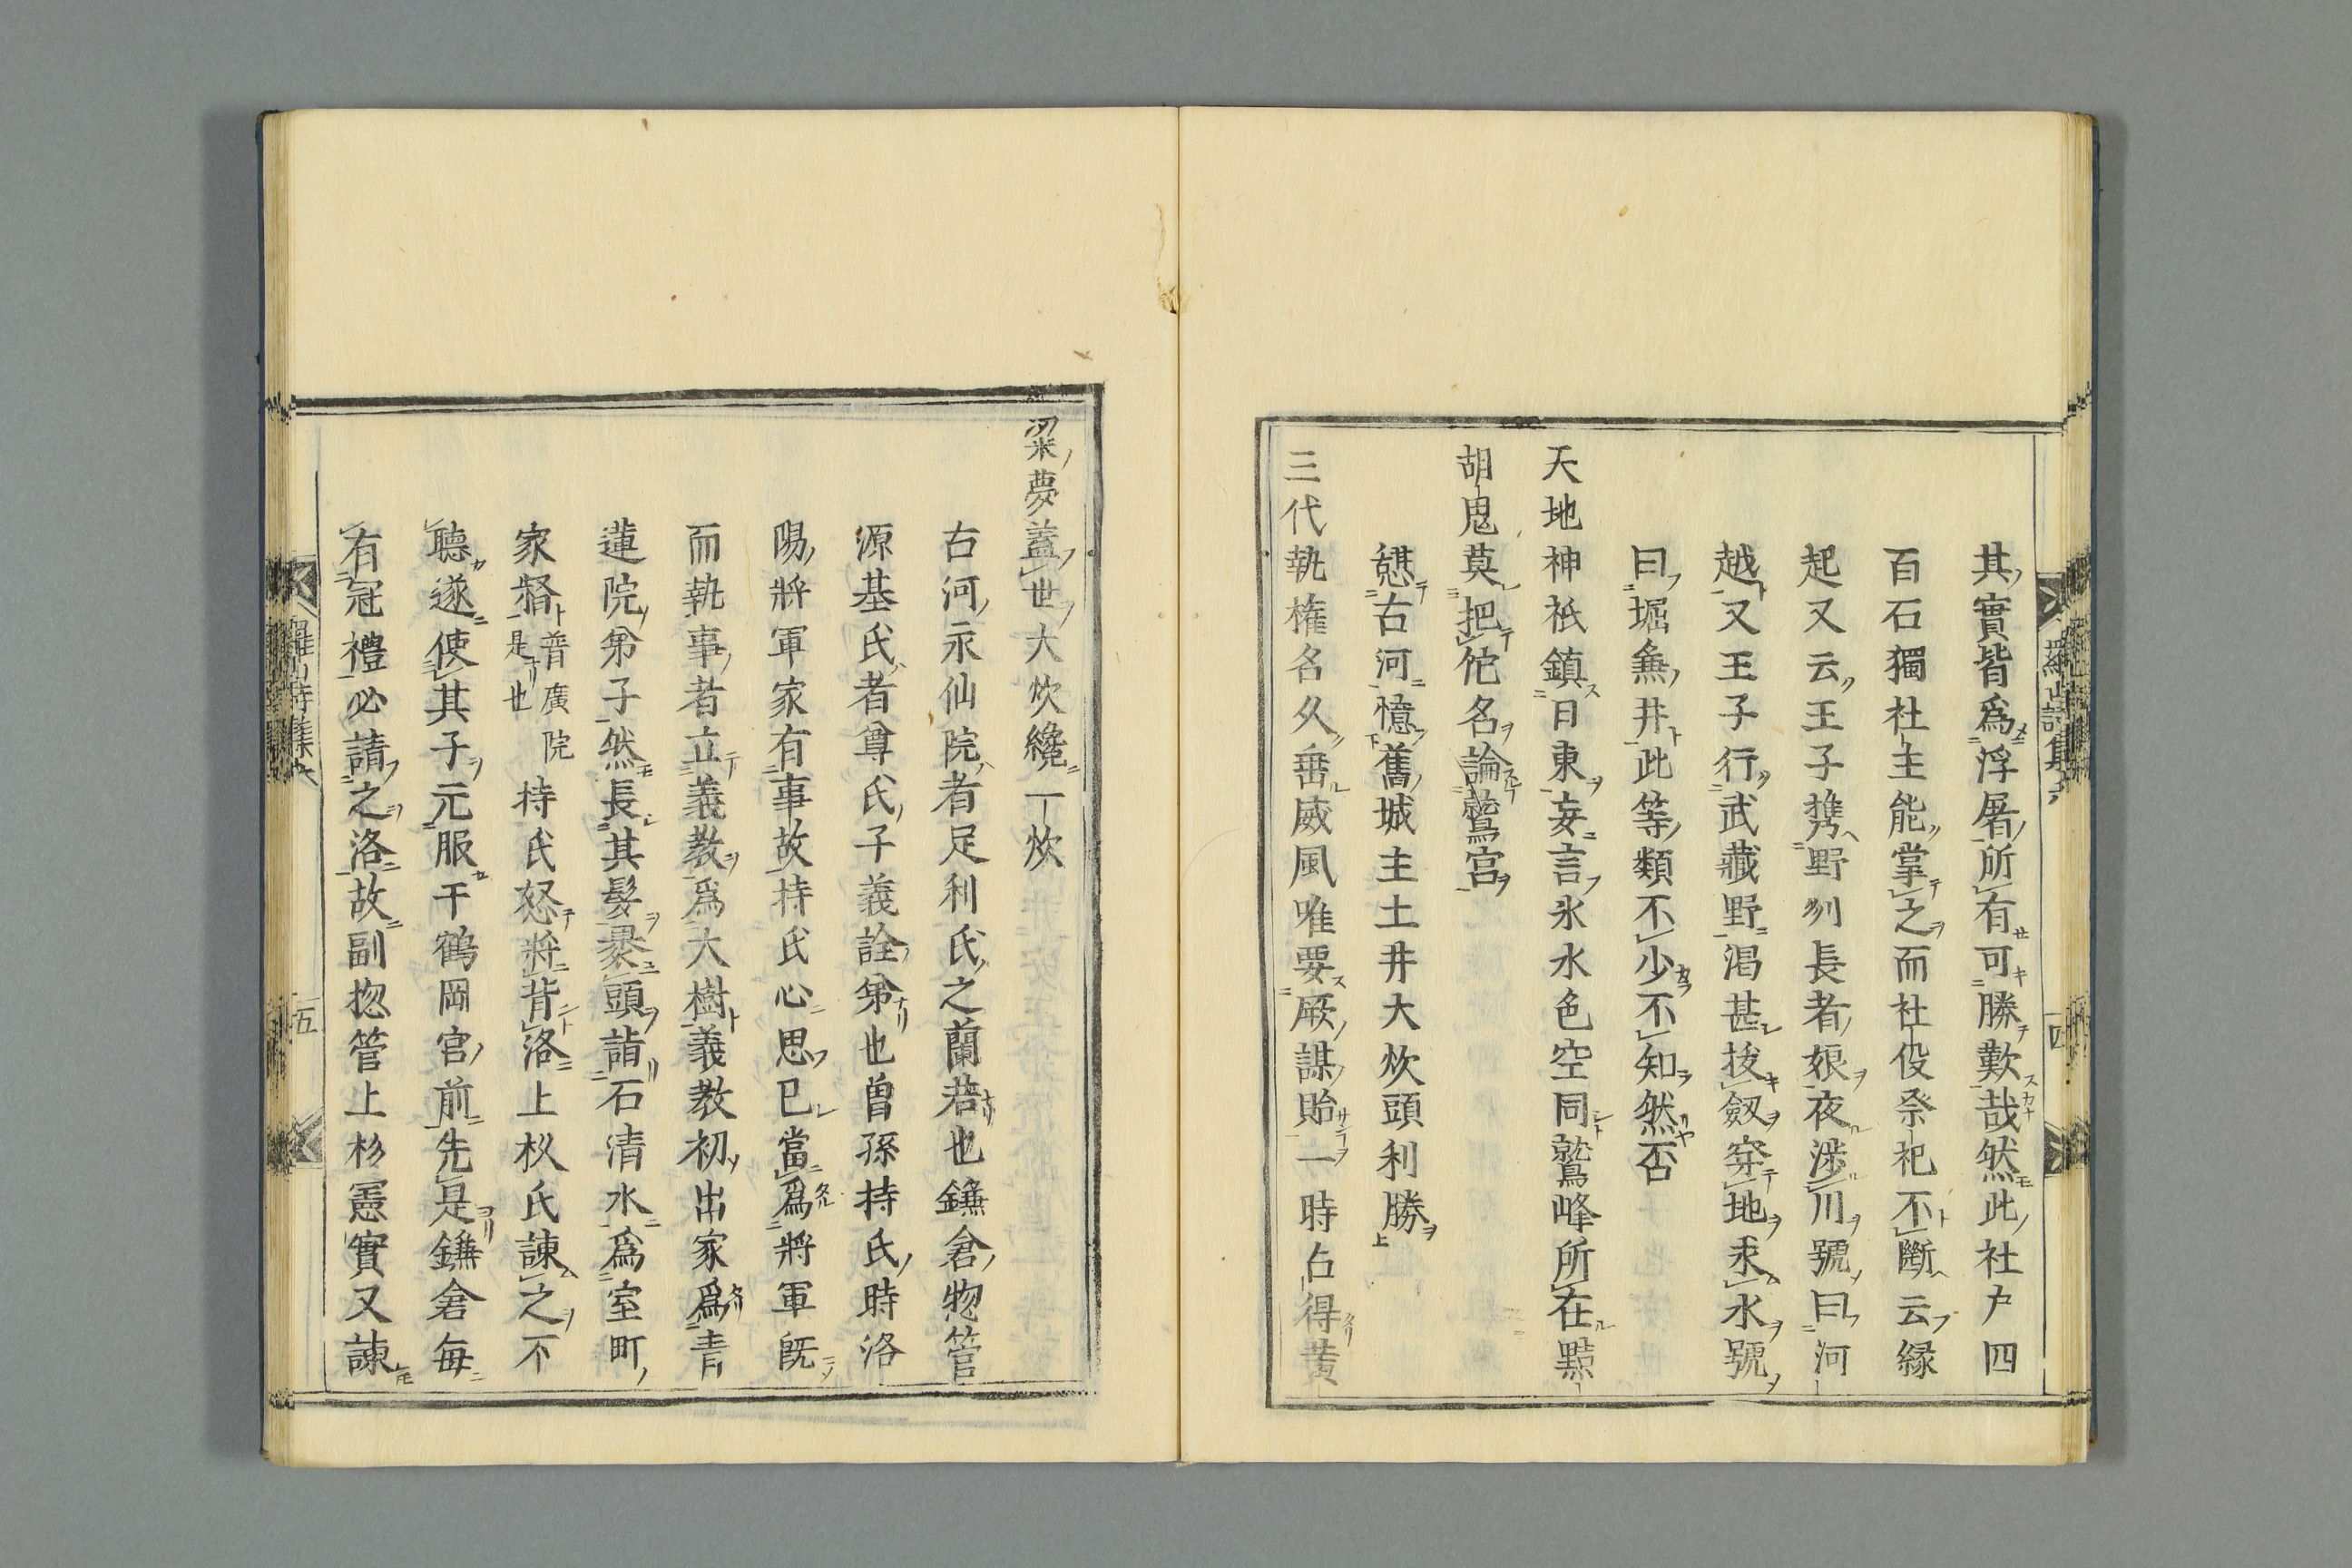 其實皆爲浮屠所有可勝歎哉然此社戸四
百石獨社主能掌之而社役祭祀不斷云縁
起又云王子携野州長者娘夜渉川號曰河
越又王子行武藏野渇甚抜劔穿地求水號
曰堀兼井此等類不少不知然否
天地神祇鎮日東妄言氷水色空同鷲峰所在㸃
胡鬼莫把佗名論鷲宮
憇古河憶舊城主土井大炊頭利勝
三代執権名久垂威風唯要厥謀貽一時占得黄
粱夢蓋世大炊纔一炊
右河永仙院者足利氏之蘭若也鎌倉惣管
源基氏者尊氏子義詮弟也曽孫持氏時洛
陽將軍家有事故持氏心思已當爲將軍既
而執事者立義教爲大樹義教初出家爲青
蓮院弟子然長其髮暴頭詣石清水爲室町
家督普廣院是也持氏怒將背洛上杦氏諫之不
聽遂使其子元服干鶴岡宮前先是鎌倉毎
有冠禮必請之洛故副惣管上杉憲實又諫
羅山詩集
四
羅山詩集
五